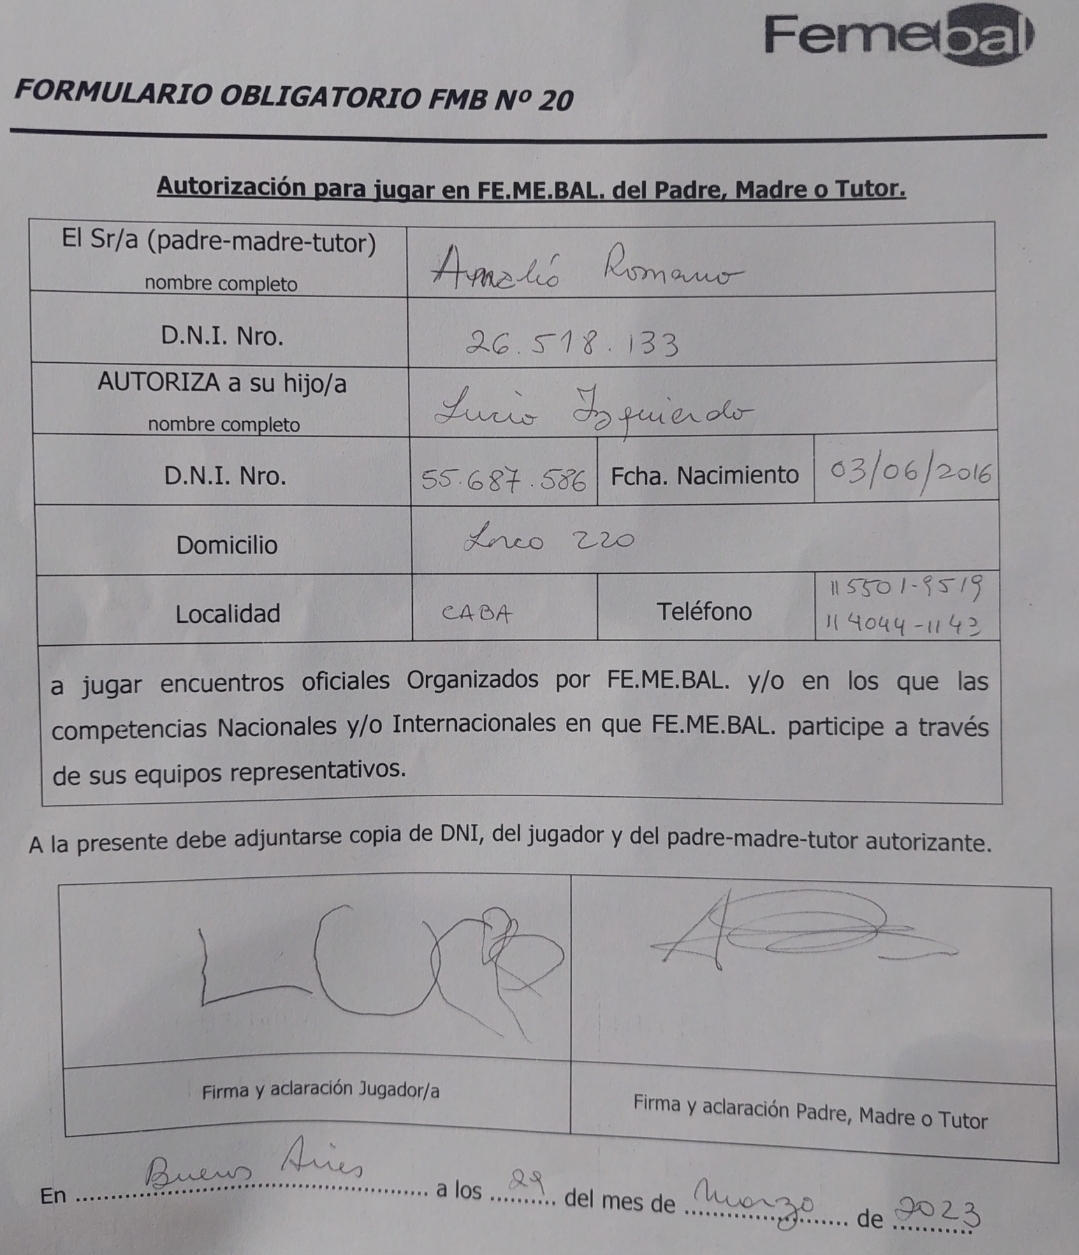 Femebal
FORMULARIO OBLIGATORIO FMB Nº 20
Autorización para jugar en FE.ME.BAL. del Padre, Madre o Tutor.
El Sr/a (padre-madre-tutor)
nombre completo
Romano
D.N.I. Nro.
26.518.133
AUTORIZA a su hijo/a
nombre completo
Lucio Izquierdo
D.N.I. Nro.
55.687.586
Fcha. Nacimiento
03/06/2016
Domicilio
220
Localidad
CABA
Teléfono
11 5501-9519
11 4044-1143
a jugar encuentros oficiales Organizados por FE.ME.BAL. y/o en los que las
competencias Nacionales y/o Internacionales en que FE.ME.BAL. participe a través
de sus equipos representativos.
A la presente debe adjuntarse copia de DNI, del jugador y del padre-madre-tutor autorizante.
Firma y aclaración Jugador/a
Firma y aclaración Padre, Madre o Tutor
En Buenos Aires a los 29 del mes de Marzo de 2023